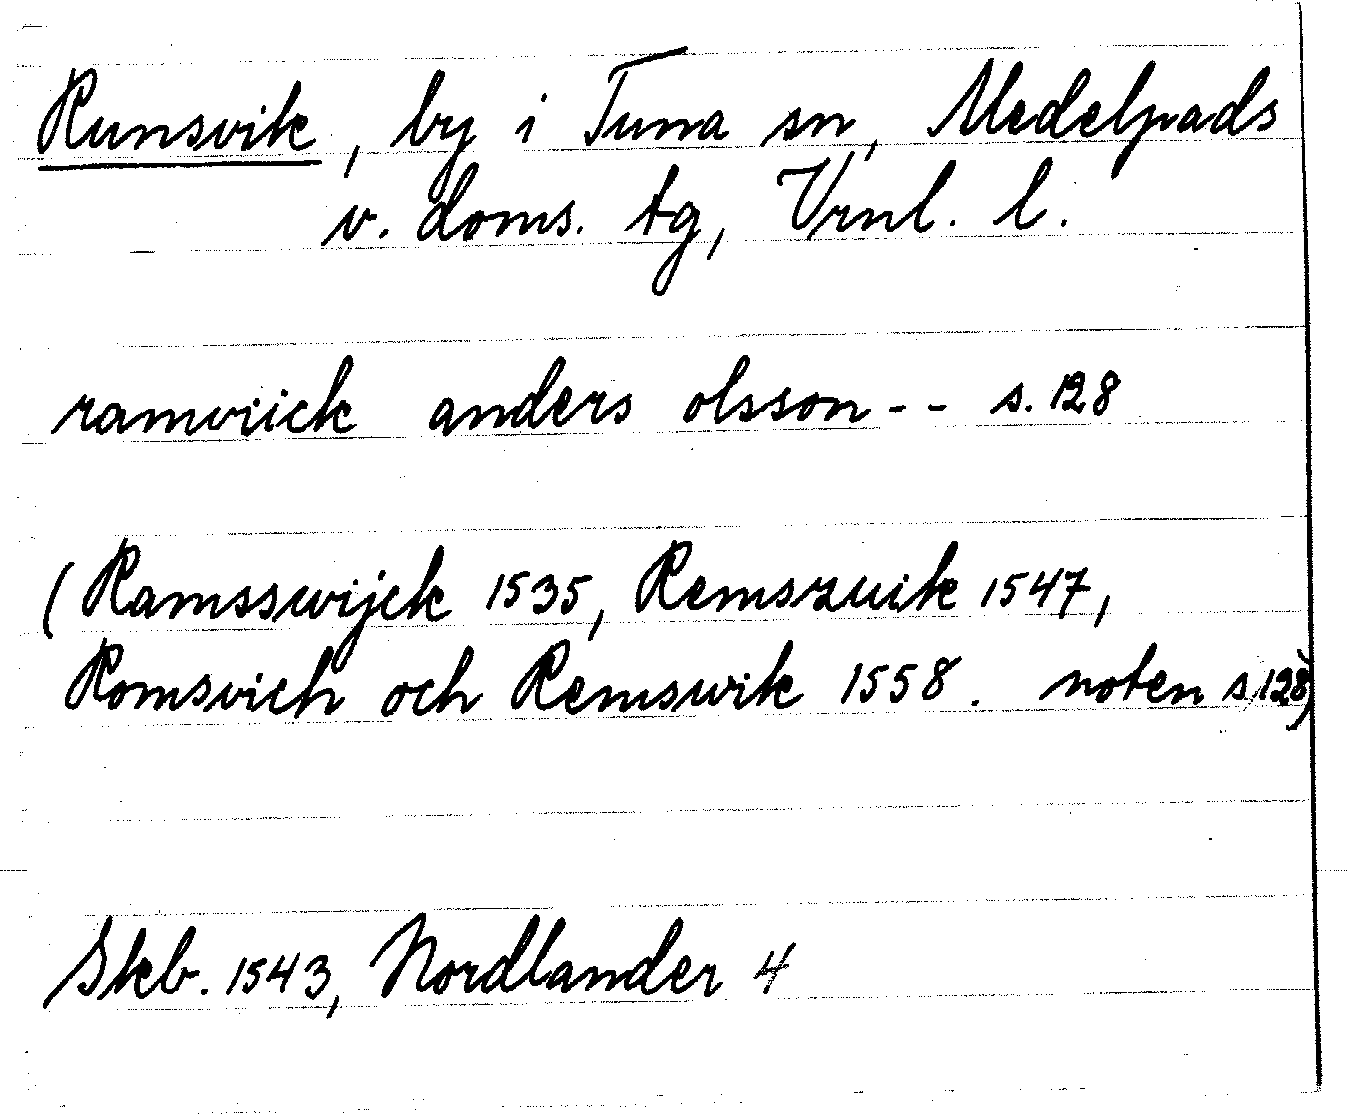 Runsvik, by i Tuna sn, Medelpads
v. doms. tg, Vrnl. l.
ramviick anders olsson - - s. 128
(Ramsswijck 1535, Remszuik 1547,
Romsvich och Remswik 1558. noten s. 128)
Skb. 1543, Nordlander 4